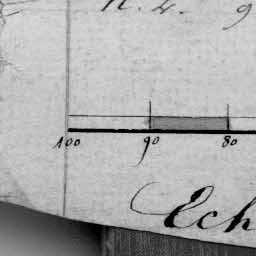 N. 4. 9
100 90 80
Ech